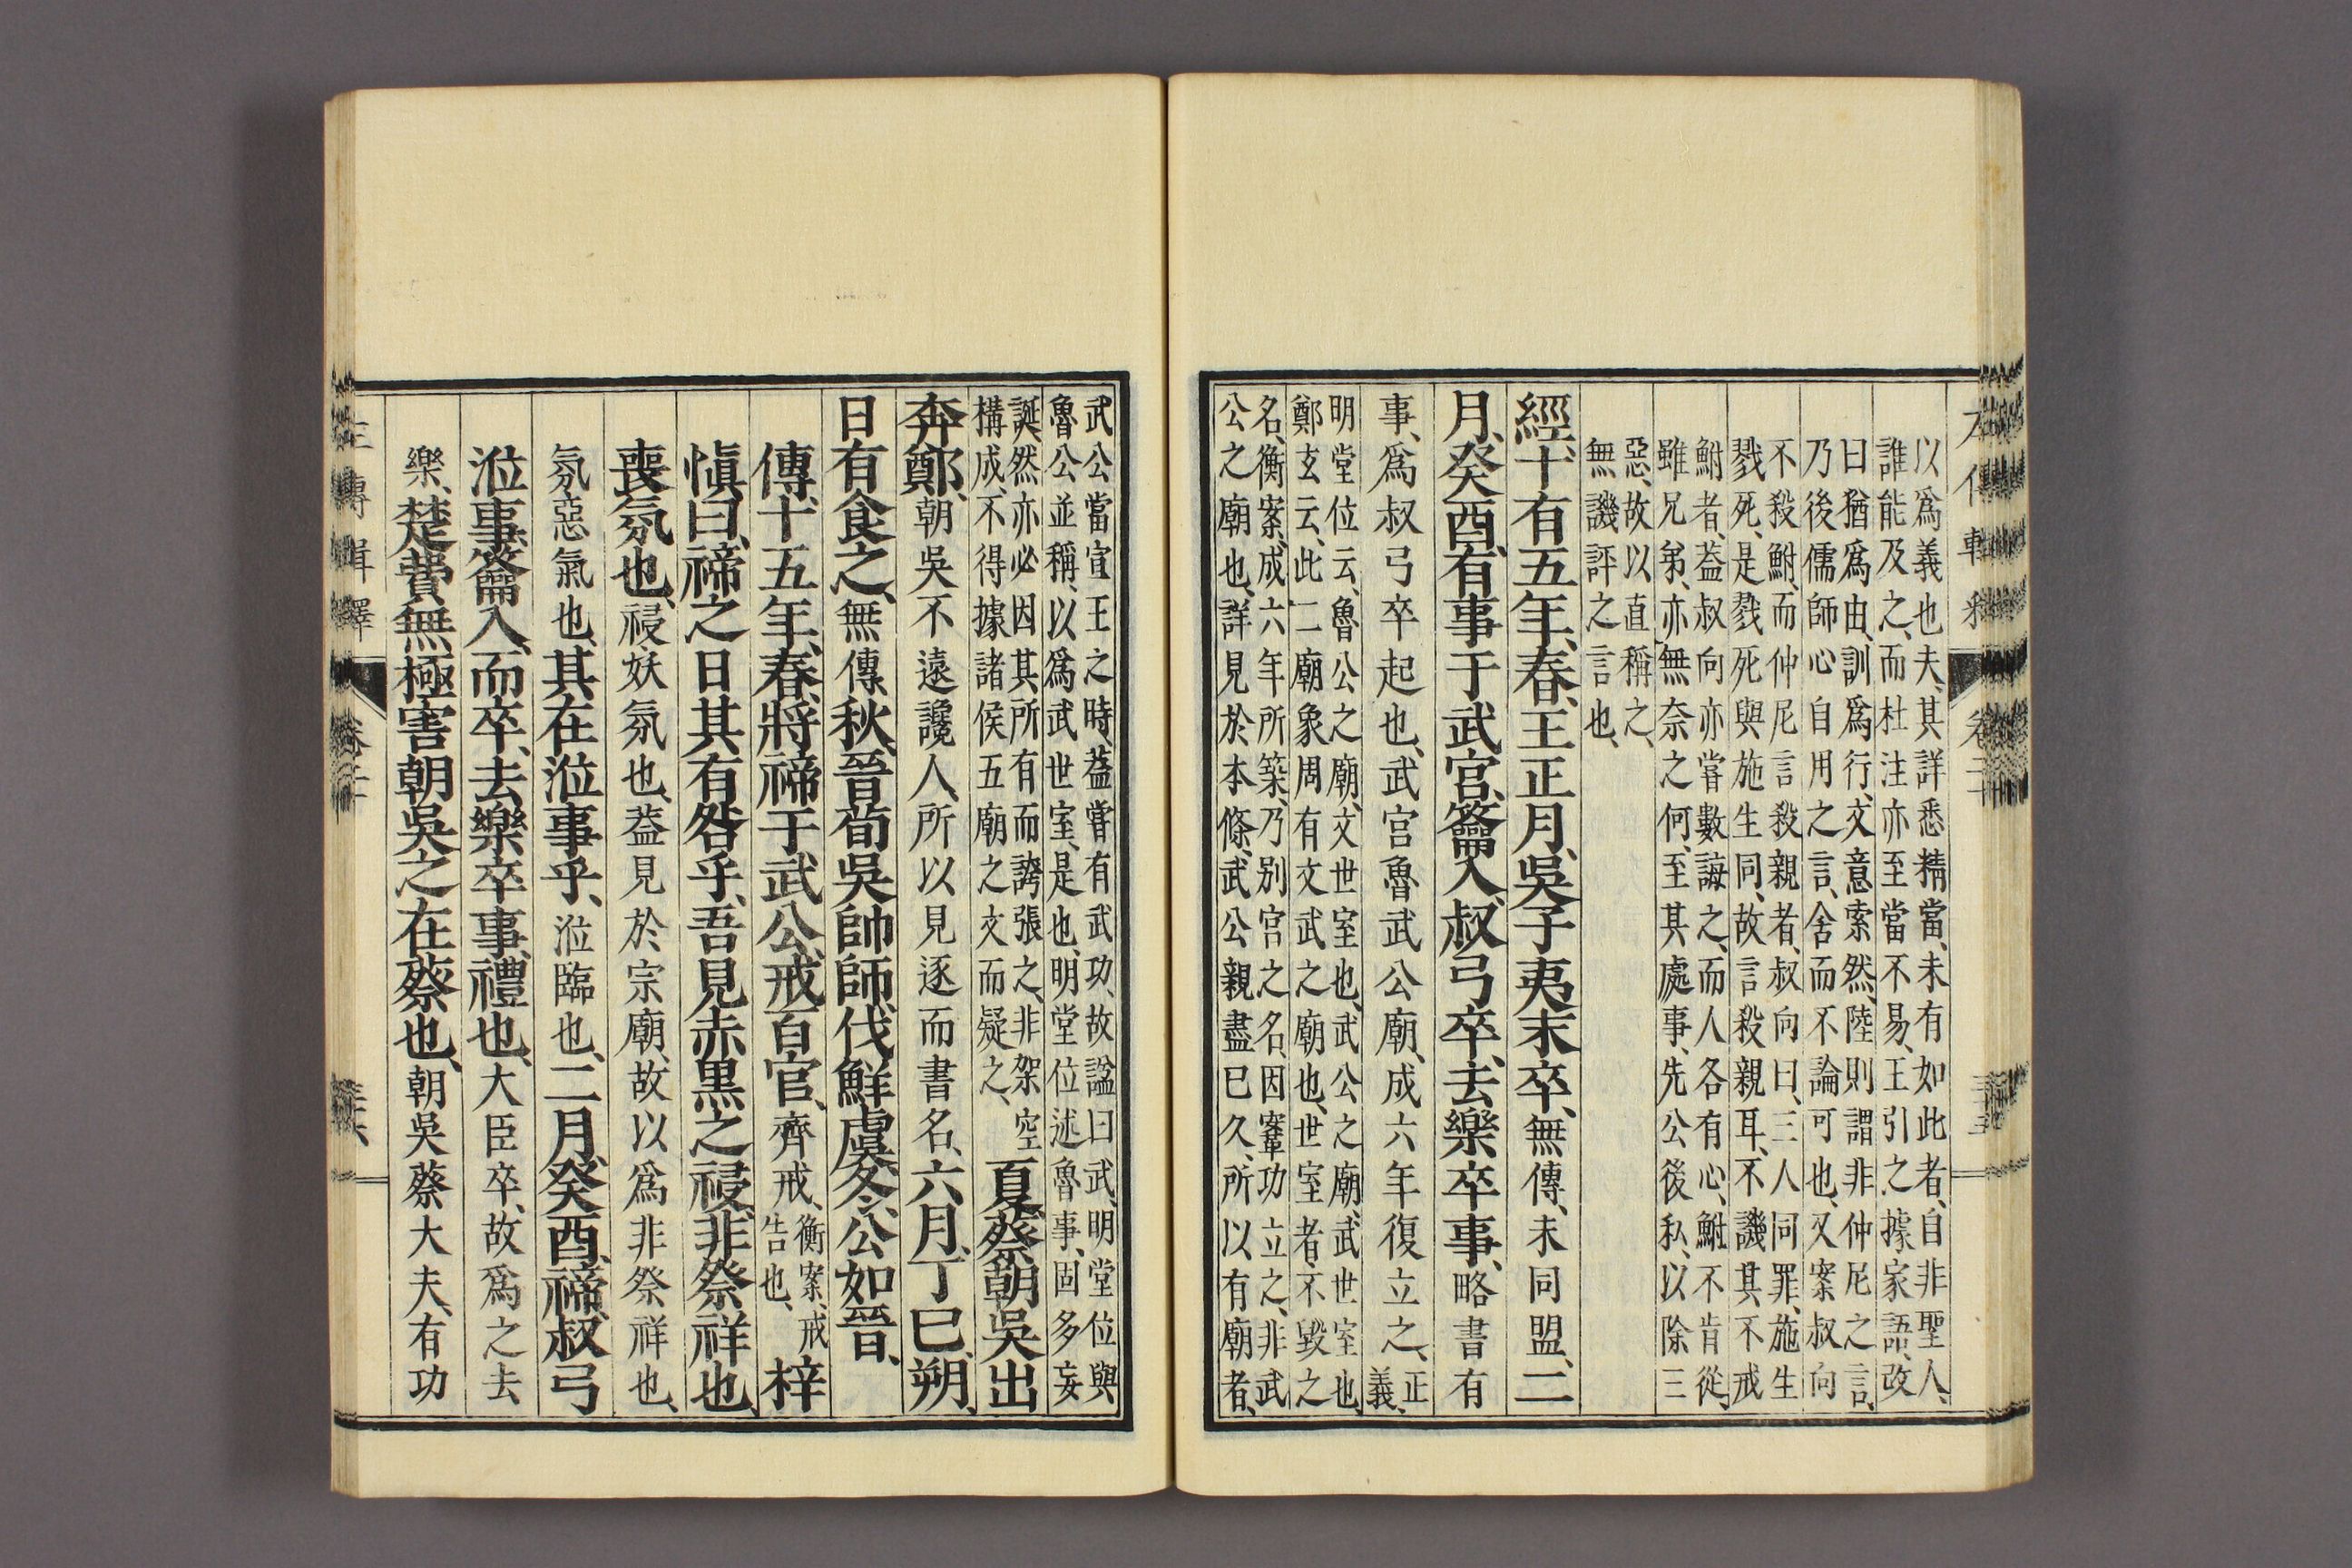 以爲義也夫、其詳悉精當、未有如此者、自非聖人、
誰能及之、而杜注亦至當不易、王引之據家語、改
曰猶爲由、訓爲行、文意索然、陸則謂非仲尼之言、
乃後儒師心自用之言、舍而不論可也、又案叔向
不殺鮒、而仲尼言殺親者、叔向曰、三人同罪、施生
戮死、是戮死與施生同、故言殺親耳、不譏其不戒
鮒者、葢叔向亦嘗數誨之、而人各有心、鮒不肯從、
雖兄弟、亦無奈之何、至其處事、先公後私、以除三
惡、故以直稱之、
無譏評之言也、
經、十有五年、春、王正月、吳子夷末卒、無傳、未同盟、二
月、癸酉、有事于武宮、籥入、叔弓卒、去樂卒事、略書有
事、爲叔弓卒起也、武宮魯武公廟、成六年復立之、正義、
明堂位云、魯公之廟、文世室也、武公之廟、武世室也、
鄭玄云、此二廟象周有文武之廟也、世室者、不毀之
名、衡案、成六年所築、乃別宮之名、因鞌功立之、非武
公之廟也、詳見於本條、武公親盡已久、所以有廟者、
武公當宣王之時、葢嘗有武功、故諡曰武、明堂位與
魯公並稱、以爲武世室、是也、明堂位述魯事、固多妄
誕、然亦必因其所有而誇張之、非架空
構成、不得據諸侯五廟之文而疑之、
夏、蔡朝吳出
奔鄭、朝吳不遠讒人、所以見逐而書名、六月、丁巳、朔、
日有食之、無傳、秋、晉荀吳帥師、伐鮮虞、冬、公如晉、
傳、十五年、春、將禘于武公、戒百官、齊戒、衡案、戒告也、梓
愼曰、禘之日其有咎乎、吾見赤黑之祲、非祭祥也、
喪氛也、祲、妖氛也、葢見於宗廟、故以爲非祭祥也、
氛惡氣也、其在涖事乎、涖臨也、二月、癸酉、禘、叔弓
涖事、籥入、而卒、去樂卒事、禮也、大臣卒、故爲之去
樂、楚費無極害朝吳之在蔡也、朝吳蔡大夫、有功
左傳輯釋
卷二
左傳輯釋
卷二